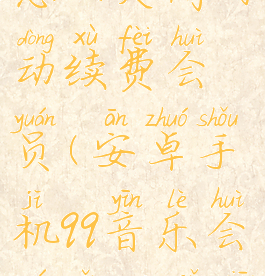 dòng xù fèi huì
动续费会
yuán ān zhuó shǒu
员(安卓手
jī yīn lè huì
机99音乐会